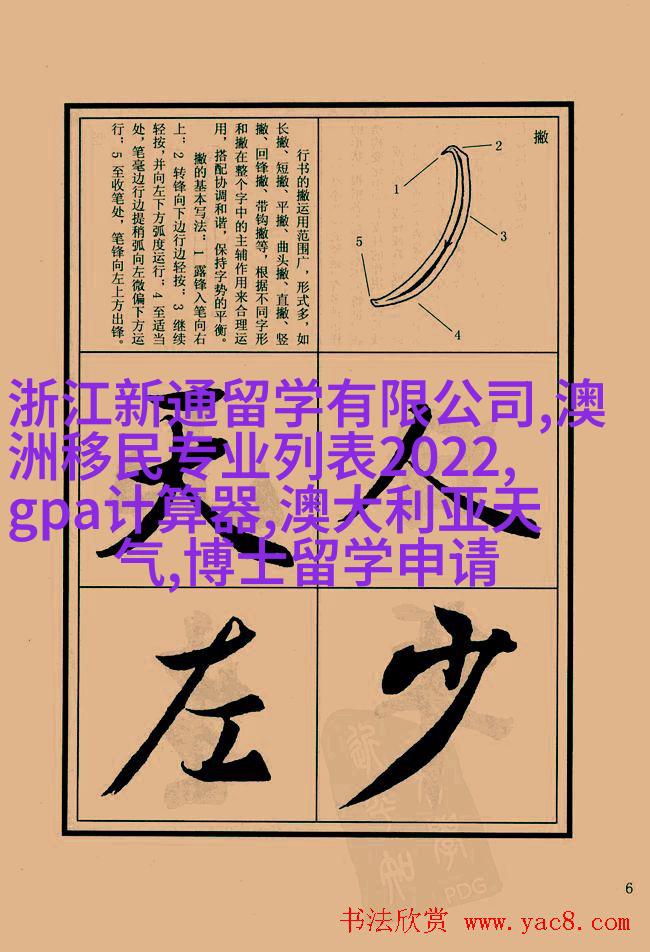 撇
1
2
3
4
5
行书的撇运用范围广，形式多，如
长撇、短撇、平撇、曲头撇、直撇、竖
撇、回锋撇、带钩撇等，根据不同字形
和撇在整个字中的主辅作用来合理运
用，搭配协调和谐，保持字势的平衡。
撇的基本写法：1 露锋入笔向右
上；2 转锋向下边行边轻按；3 继续
轻按，并向左下方弧度运行；4 至适当
处，笔毫边行边提稍弧向左微偏下方运
行；5 至收笔处，笔锋向左上方出锋。
浙江新通留学有限公司,澳
洲移民专业列表2022,
gpa计算器,澳大利亚天
气,博士留学申请
人
天
少
左
PDG
6
书法欣赏 www.yac8.com